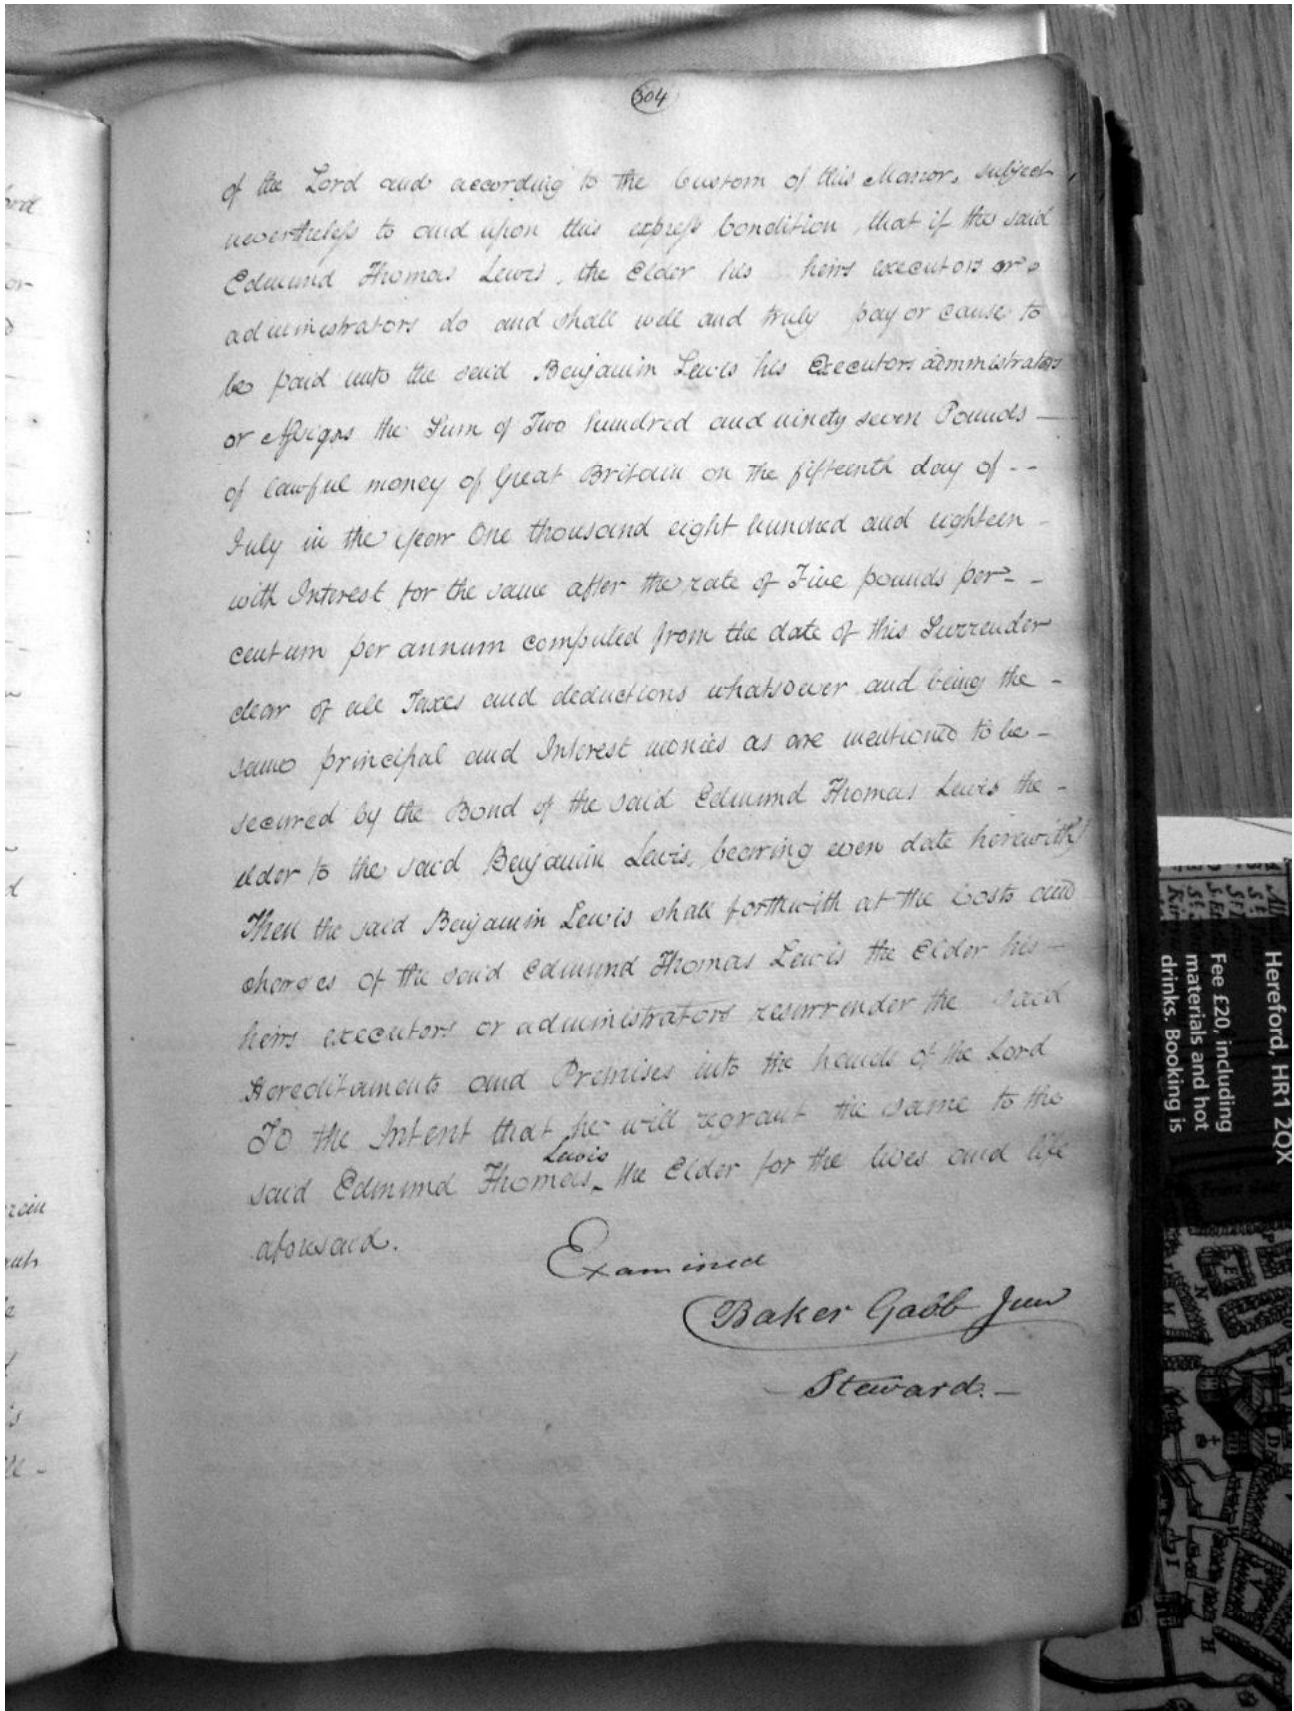 304
of the Lord and according to the Custom of this Manor, subject,
nevertheless to and upon this express Condition, that if the said
Edmund Thomas Lewis, the Elder his heirs executors or
administrators do and shall well and truly pay or cause to
be paid unto the said Benjamin Lewis his Executors administrators
or Assigns the Sum of Two hundred and ninety seven Pounds —
of lawful money of Great Britain on the fifteenth day of --
July in the year One thousand eight hundred and eighteen -
with Interest for the same after the rate of Five pounds per - -
centum per annum computed from the date of this Surrender
clear of all Taxes and deductions whatsoever and being the -
same principal and Interest monies as are mentioned to be -
secured by the Bond of the said Edmund Thomas Lewis the -
elder to the said Benjamin Lewis, bearing even date herewith
Then the said Benjamin Lewis shall forthwith at the Costs and
charges of the said Edmund Thomas Lewis the Elder his —
heirs executors or administrators resurrender the said
Hereditaments and Premises into the hands of the Lord
To the Intent that he will regrant the same to the
said Edmund Thomas Lewis the Elder for the lives and life
aforesaid.
Examined
Baker Gabb Junr
— Steward. —
Hereford, HR1 2QX
Fee £20, including
materials and hot
drinks. Booking is